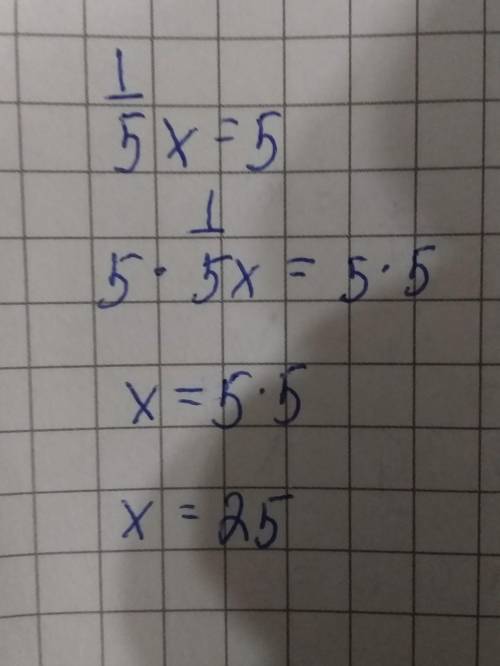 1/5 x = 5
5 · 1/5 x = 5 · 5
x = 5 · 5
x = 25